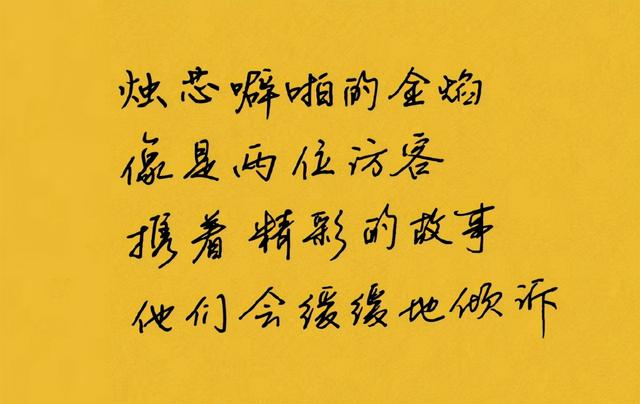 烛芯噼啪的金焰
像是两位访客
携着精彩的故事
他们会缓缓地倾诉